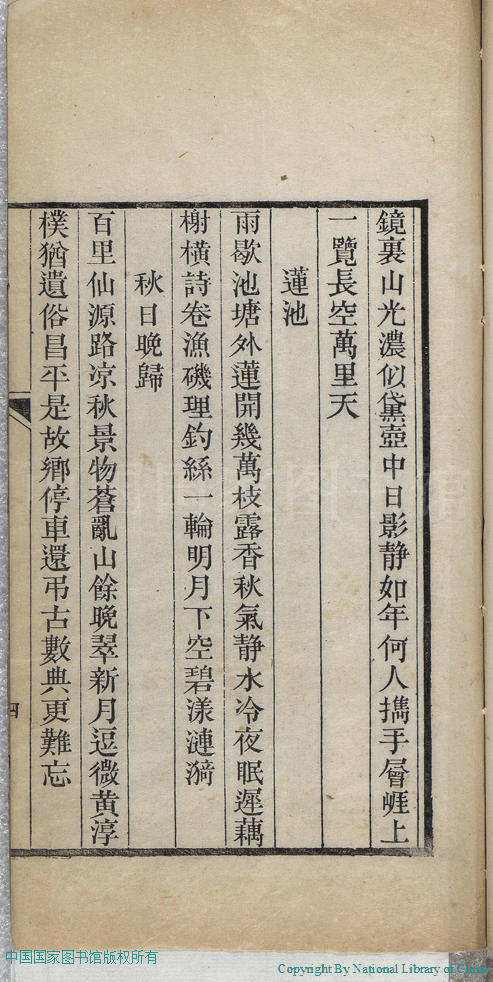 鏡裏山光濃似黛壺中日影靜如年何人攜手層崕上
一覽長空萬里天
蓮池
雨歇池塘外蓮開幾萬枝露香秋氣靜水冷夜眠遲藕
榭橫詩卷漁磯理釣絲一輪明月下空碧漾漣漪
秋日晚歸
百里仙源路凉秋景物蒼亂山餘晚翠新月逗微黃淳
樸猶遺俗昌平是故鄉停車還弔古數典更難忘
四
中国国家图书馆版权所有
Copyright By National Library of China